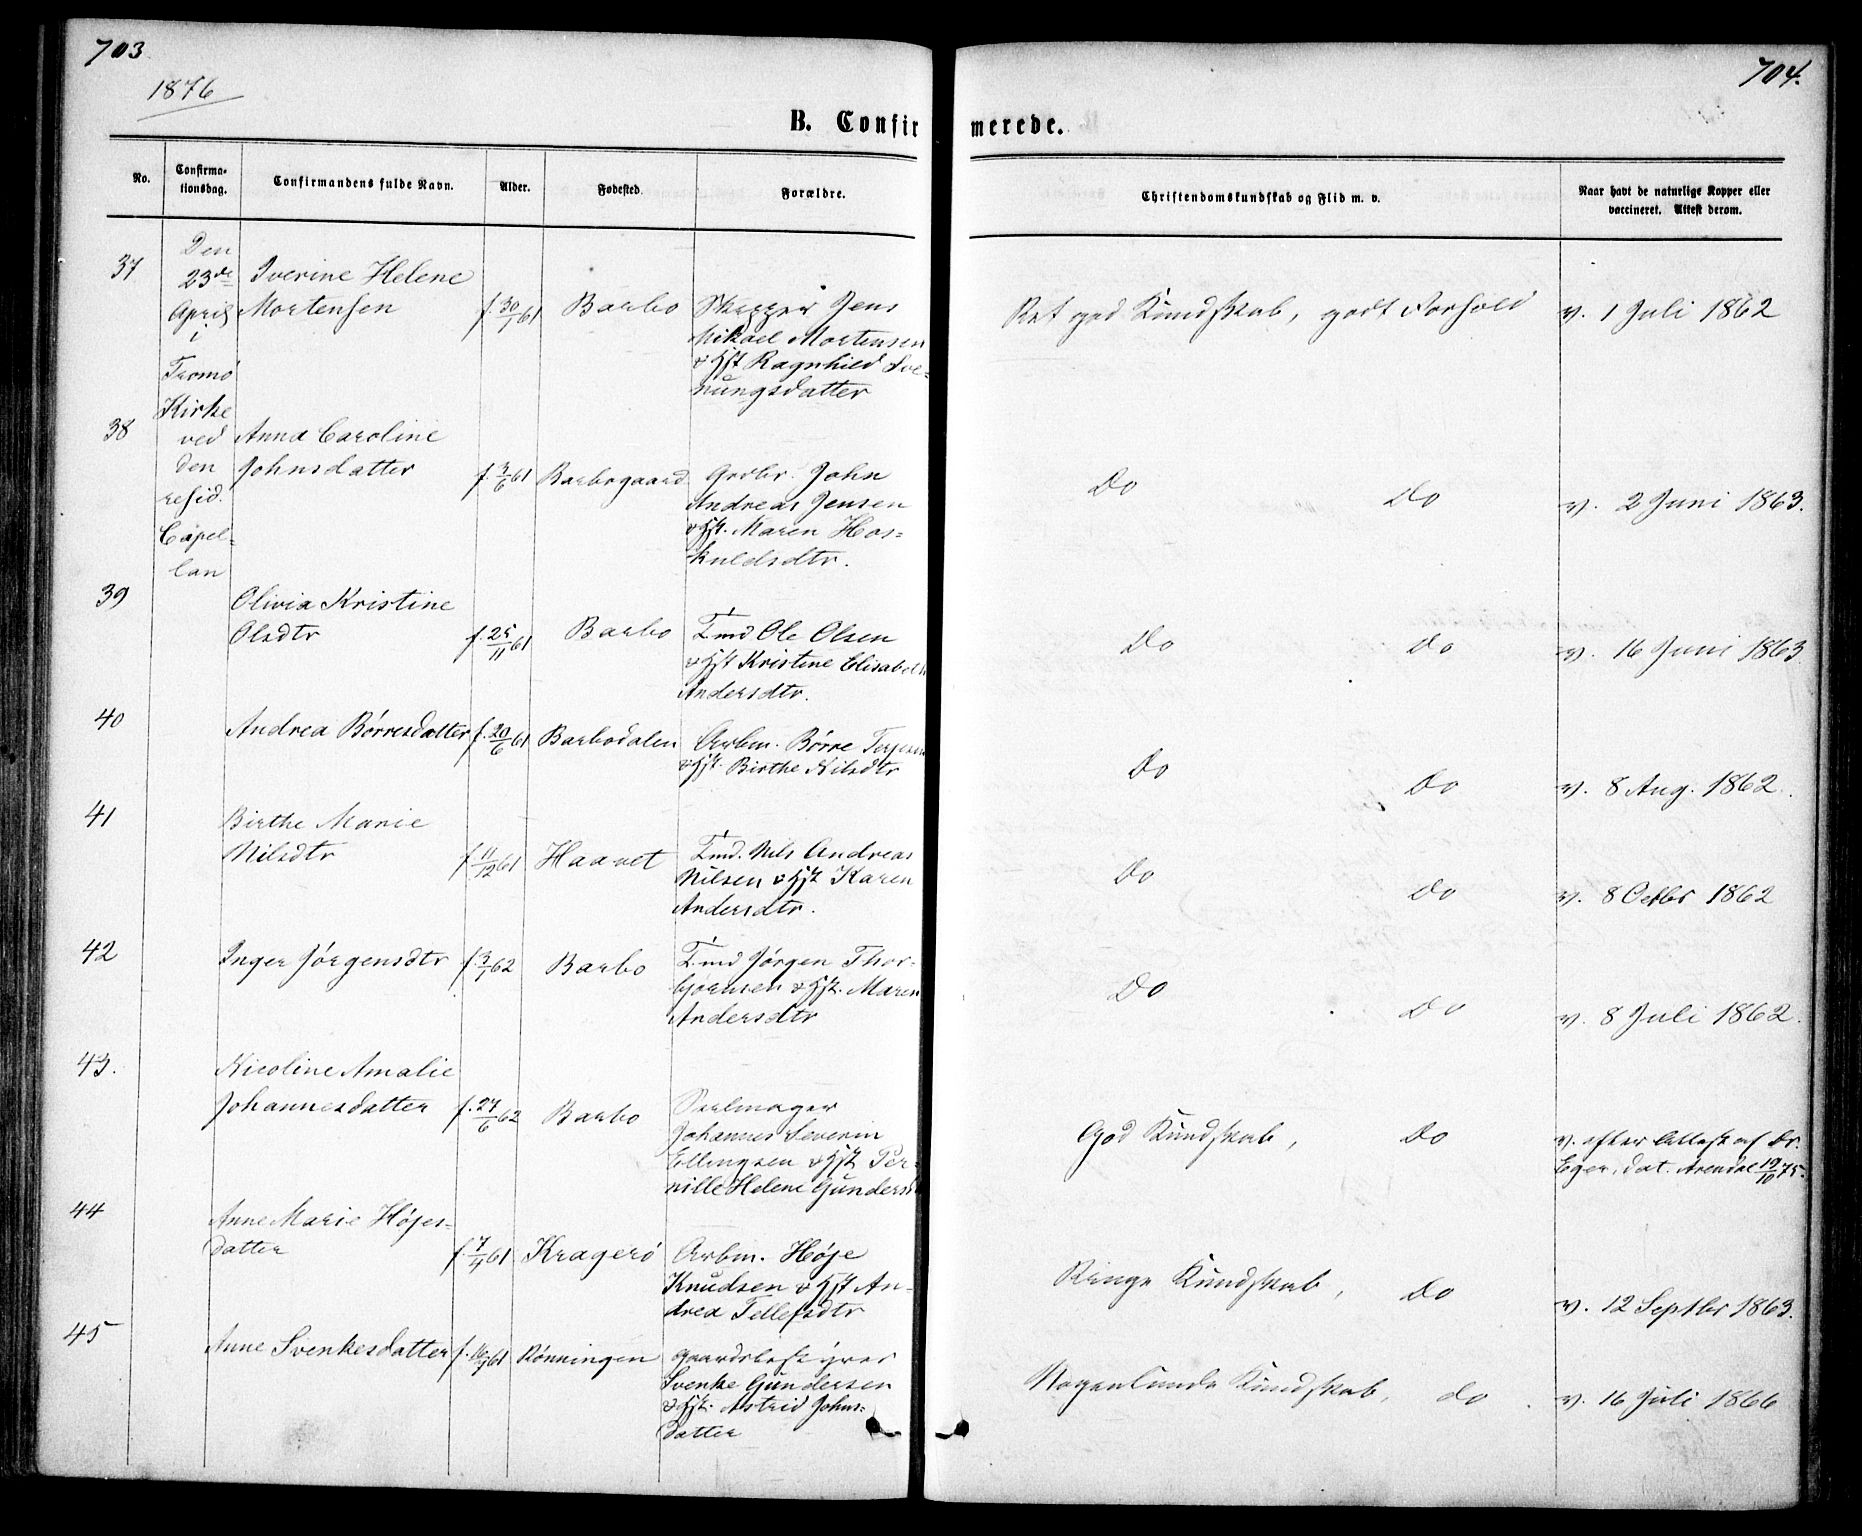 703
704.
1876
B. Confirmerede.
No.
Confirmationsdag.
Confirmandens fulde Navn.
Alder.
Fødested.
Forældre.
Christendomskundskab og Flid m. v.
Naar havt de naturlige Kopper eller vaccineret. Attest derom.
Den
23de
April
i
Tromø
Kirke
ved
den
resid.
Capel-
lan
37
Iverine Helene
Mortensen
f. 30/1 61
Barbo
Skipper Jens
Mikael Mortensen
& Hst Ragnhild Sve-
nungsdatter
Ret god Kundskab, godt Forhold
v. 1 Juli 1862
38
Anna Caroline
Johnsdatter
f. 3/6 61
Barbogaard
Grdbr. John
Andreas Jensen
& Hst. Maren Hos-
kuldsdtr.
Do
Do
v. 2 Juni 1863.
39
Olivia Kristine
Olsdtr
f. 25/11 61
Barbo
Tmd Ole Olsen
& Hst Kristine Elisabeth
Andersdtr.
Do
Do
v. 16 Juni 1863
40
Andrea Børresdatter
f. 20/6 61
Barbodalen
Arbm. Børre Terjesen
& Hst. Birthe Nilsdtr
Do
Do
v. 8 Aug. 1862.
41
Birthe Marie
Nilsdtr
f. 11/12 61
Haavet
Tmd. Nils Andreas
Nilsen & Hst Karen
Andersdtr.
Do
Do
v. 8 Octbr 1862
42
Inger Jørgensdtr
f. 3/1 62
Barbo
Tmd Jørgen Thor-
bjørnsen & Hst. Maren
Andersdtr
Do
Do
v. 8 Juli 1862.
43.
Nicoline Amalie
Johannesdatter
f. 27/6 62
Barbo
Seilmager
Johannes Severin
Ellingsen & Hst Per-
nille Helene Gunders
God Kundskab,
Do
v. efter Attest af Dr.
Eger, dat. Arendal 19/10 75.
44
Anne Marie Højes-
datter
61
Kragerö
Arbm. Høje
Knudsen & Hst An-
drea Tellefsdtr
Ringe Kundskab,
Do
v. 12 Septbr 1863.
45
Anne Svenkesdatter
61
Rønningen
Gaardsbestyrer
Svenke Gundersen
& Hst. Astrid Johns-
datter
Nogenlunde Kundskab,
do
v. 16 Juli 1866